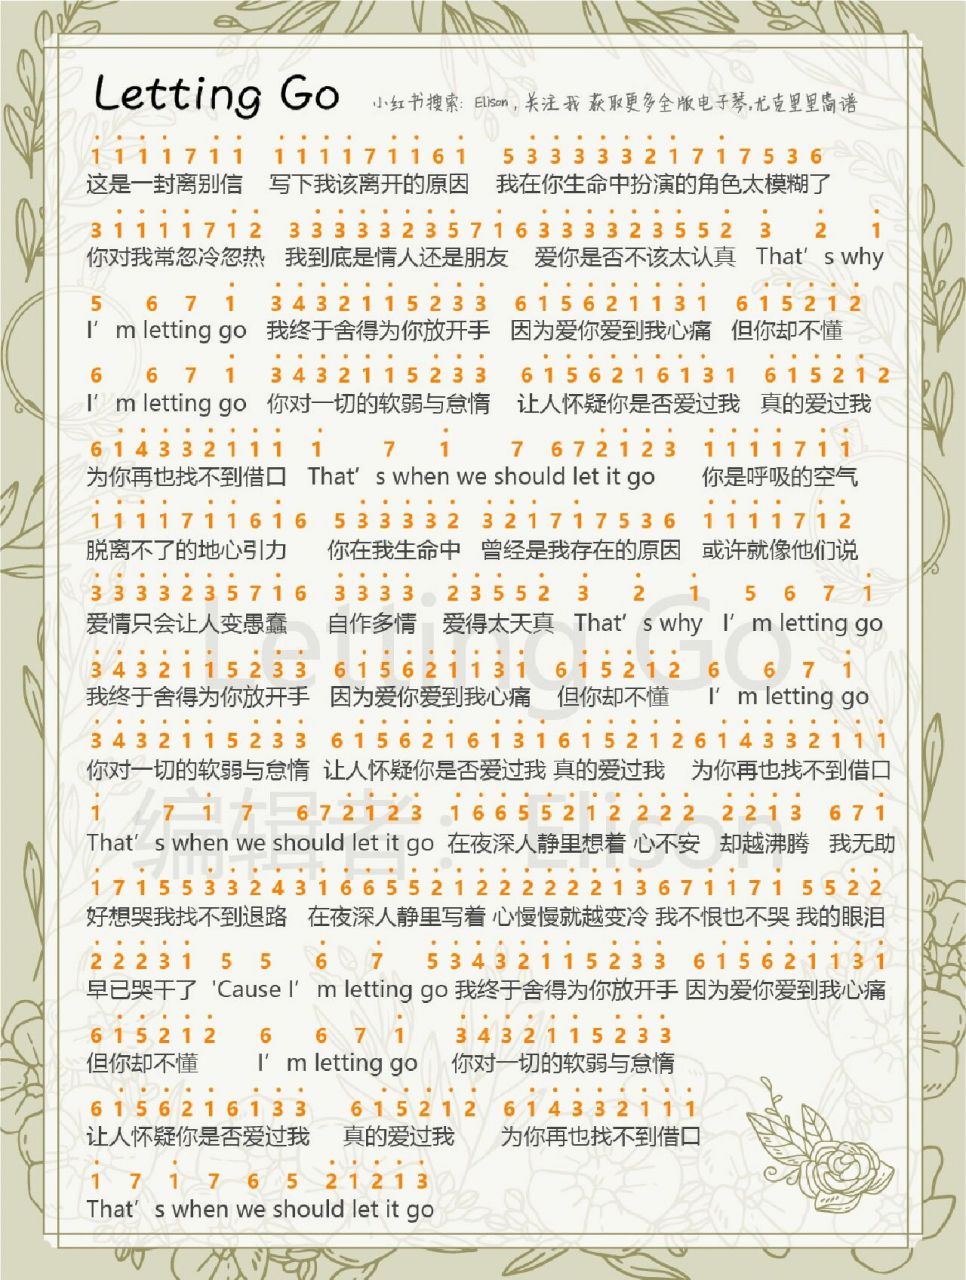 Letting Go 小红书搜索: Elison，关注我 获取更多全版电子琴,尤克里里简谱
1 1 1 1 7 1 1 1 1 1 1 7 1 1 6 1 5 3 3 3 3 3 2 1 7 1 7 5 3 6
这是一封离别信 写下我该离开的原因 我在你生命中扮演的角色太模糊了
3 1 1 1 1 7 1 2 3 3 3 3 3 2 3 5 7 1 6 3 3 3 3 2 3 5 5 2 3 2 1
你对我常忽冷忽热 我到底是情人还是朋友 爱你是否不该太认真 That's why
5 6 7 1 3 4 3 2 1 1 5 2 3 3 6 1 5 6 2 1 1 3 1 6 1 5 2 1 2
I'm letting go 我终于舍得为你放开手 因为爱你爱到我心痛 但你却不懂
6 6 7 1 3 4 3 2 1 1 5 2 3 3 6 1 5 6 2 1 6 1 3 1 6 1 5 2 1 2
I'm letting go 你对一切的软弱与怠惰 让人怀疑你是否爱过我 真的爱过我
6 1 4 3 3 2 1 1 1 1 7 1 7 6 7 2 1 2 3 1 1 1 1 7 1 1
为你再也找不到借口 That's when we should let it go 你是呼吸的空气
1 1 1 1 7 1 1 6 1 6 5 3 3 3 3 2 3 2 1 7 1 7 5 3 6 1 1 1 1 7 1 2
脱离不了的地心引力 你在我生命中 曾经是我存在的原因 或许就像他们说
3 3 3 3 2 3 5 7 1 6 3 3 3 3 2 3 5 5 2 3 2 1 5 6 7 1
爱情只会让人变愚蠢 自作多情 爱得太天真 That's why I'm letting go
3 4 3 2 1 1 5 2 3 3 6 1 5 6 2 1 1 3 1 6 1 5 2 1 2 6 6 7 1
我终于舍得为你放开手 因为爱你爱到我心痛 但你却不懂 I'm letting go
3 4 3 2 1 1 5 2 3 3 6 1 5 6 2 1 6 1 3 1 6 1 5 2 1 2 6 1 4 3 3 2 1 1 1
你对一切的软弱与怠惰 让人怀疑你是否爱过我 真的爱过我 为你再也找不到借口
1 7 1 7 6 7 2 1 2 3 1 6 6 5 5 2 1 2 2 2 2 2 2 1 3 6 7 1
That's when we should let it go 在夜深人静里想着 心不安 却越沸腾 我无助
1 7 1 5 5 3 3 2 4 3 1 6 6 5 5 2 1 2 2 2 2 2 2 1 3 6 7 1 1 7 1 5 5 2 2
好想哭我找不到退路 在夜深人静里写着 心慢慢就越变冷 我不恨也不哭 我的眼泪
2 2 2 3 1 5 5 6 7 5 3 4 3 2 1 1 5 2 3 3 6 1 5 6 2 1 1 3 1
早已哭干了 'Cause I'm letting go 我终于舍得为你放开手 因为爱你爱到我心痛
6 1 5 2 1 2 6 6 7 1 3 4 3 2 1 1 5 2 3 3
但你却不懂 I'm letting go 你对一切的软弱与怠惰
6 1 5 6 2 1 6 1 3 3 6 1 5 2 1 2 6 1 4 3 3 2 1 1 1
让人怀疑你是否爱过我 真的爱过我 为你再也找不到借口
1 7 1 7 6 5 2 1 2 1 3
That's when we should let it go
Letting Go
编辑者：Elison